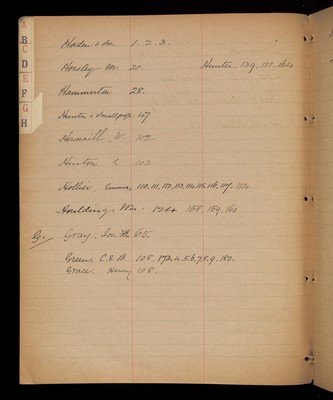 A
B
C
D
E
F
G
H
Haden & Son 1. 2. 3.
Horsley M. 20. Hunter, 139, 150, 164
Hammerton 28.
Hunter & Smallpage 107
W. 102.
Hinton G. 103
Hollier, Emma, 110. 111, 112, 113, 114. 115. 116, 117,
Houlding, Wm. 158, 159, 160
G. Gray, Jos. 65.
Green, C.E.A. 108, 173. 4. 5. 6. 7. 8. 9. 180.
Grace, Henry 108.